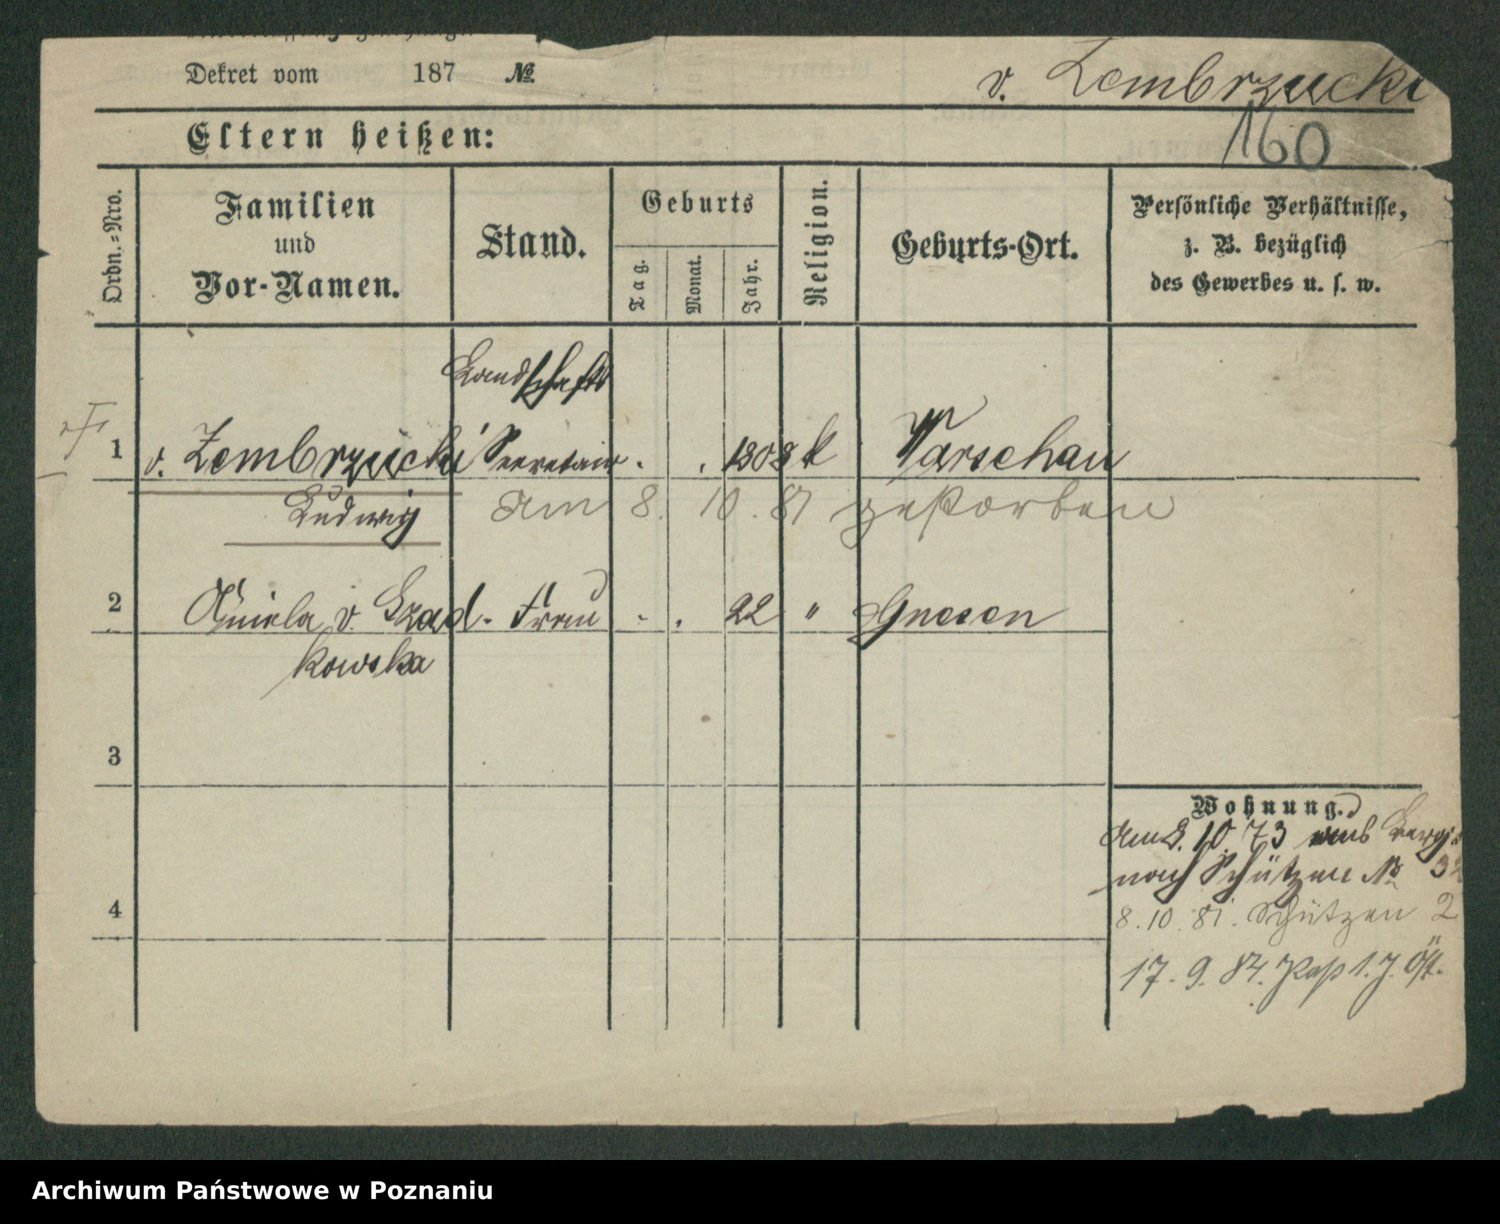 Dekret vom 187 №
v. Zembrzucki
Eltern heißen:
160
Ordn.=Nro.
Familien
und
Vor-Namen.
Stand.
Geburts
Tag.
Monat.
Jahr.
Religion.
Geburts-Ort.
Persönliche Verhältnisse,
z. B. bezüglich
des Gewerbes u. s. w.
Landschafts
1 v. Zembrzucki Secretair . . 1808 k Warschau
Ludwig am 8. 10. 81 gestorben
2 Aniela v. Grad- Frau . . 22 " Gnesen
kowska
3
Wohnung.
am 2. 10 73 aus
nach Schützen № 32
4
8. 10. 81. Schützen 2
17. 9. 84. Paß 1. J. Öst.
Archiwum Państwowe w Poznaniu